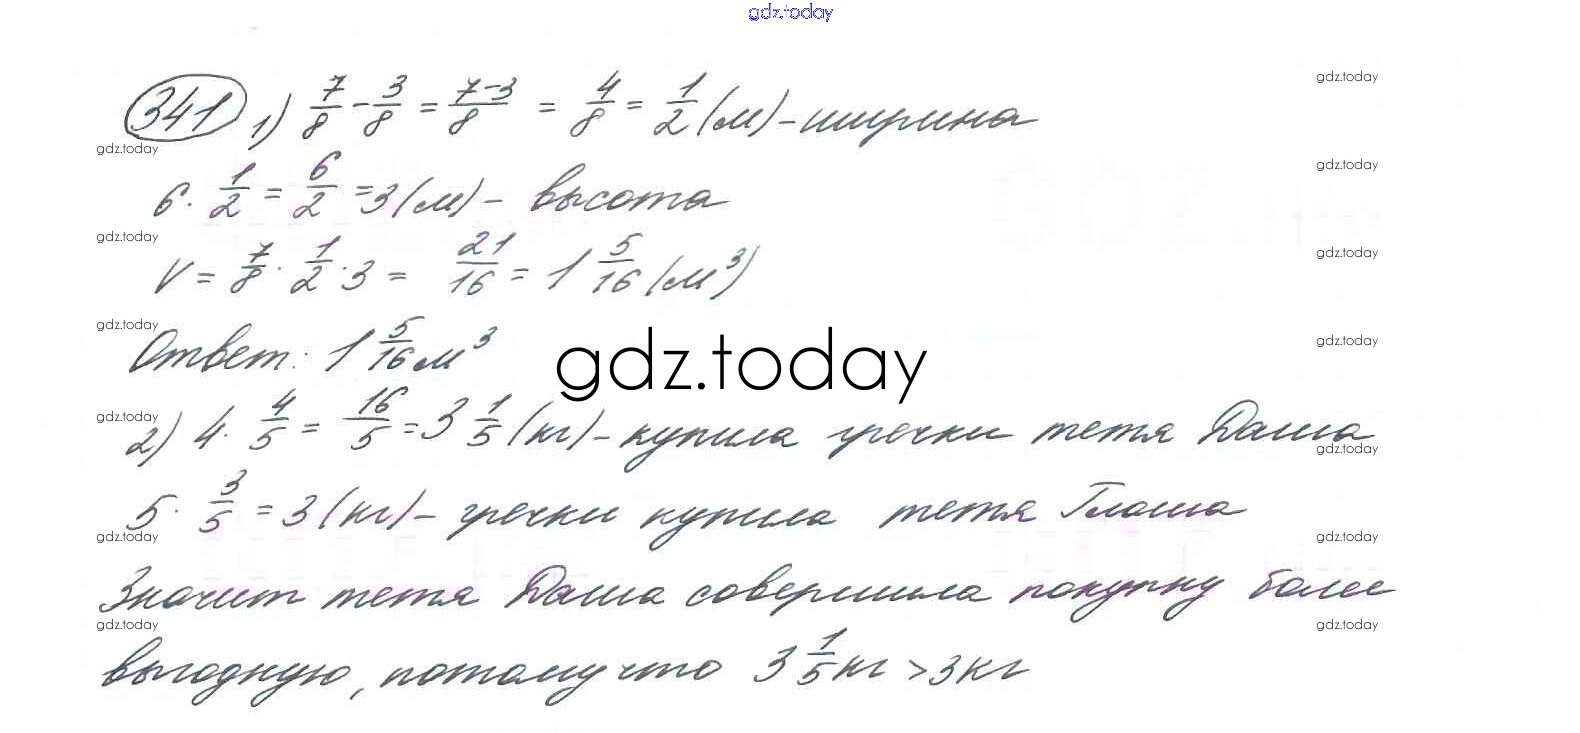 gdz.today
341 1) 7/8 - 3/8 = 7-3/8 = 4/8 = 1/2 (м) - ширина
gdz.today
gdz.today
6 · 1/2 = 6/2 = 3 (м) - высота
gdz.today
gdz.today
V = 7/8 · 1/2 · 3 = 21/16 = 1 5/16 (м³)
gdz.today
gdz.today
Ответ: 1 5/16 м³
gdz.today
gdz.today
gdz.today
2) 4 · 4/5 = 16/5 = 3 1/5 (кг) - купила гречки тетя Даша
gdz.today
gdz.today
5 · 3/5 = 3 (кг) - гречки купила тетя Глаша
gdz.today
gdz.today
Значит тетя Даша совершила покупку более
gdz.today
gdz.today
выгодную, потому что 3 1/5 кг > 3 кг